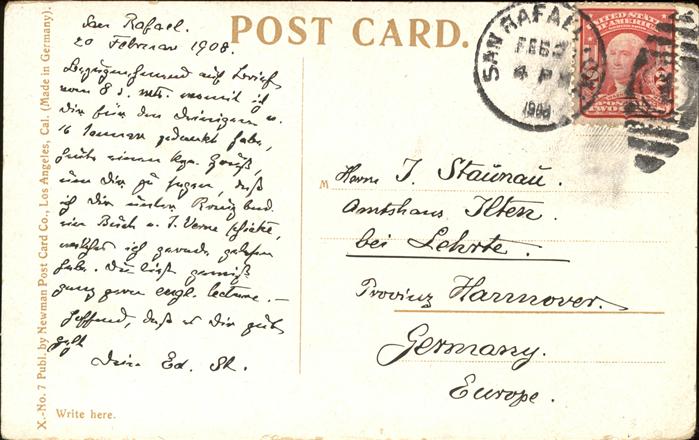 X.-No. 7 Publ. by Newman Post Card Co., Los Angeles, Cal. (Made in Germany).
POST CARD.
San Rafael.
20 Februar 1908.
Bezugnehmend auf Brief
vom 8 d. mts. womit ich
Dir für den Deinigen
16 Januar gedankt habe,
heute einen kzn. Gruß,
um Dir zu sagen, daß
ich Dir unter
ein Buch v. J. Verne schicke,
welches ich gerade gelesen
habe. Du liest gewiß
ganz gern engl. lecture. —
Hoffend, daß es Dir gut
geht
Dein Ed. St.
Write here.
SAN RAFAEL
FEB
4 P
1908
UNITED STATES
POSTAGE
TWO
M
Herrn J. Staunau.
Amtshaus Ilten.
bei Lehrte.
Provinz Hannover.
Germany.
Europe.